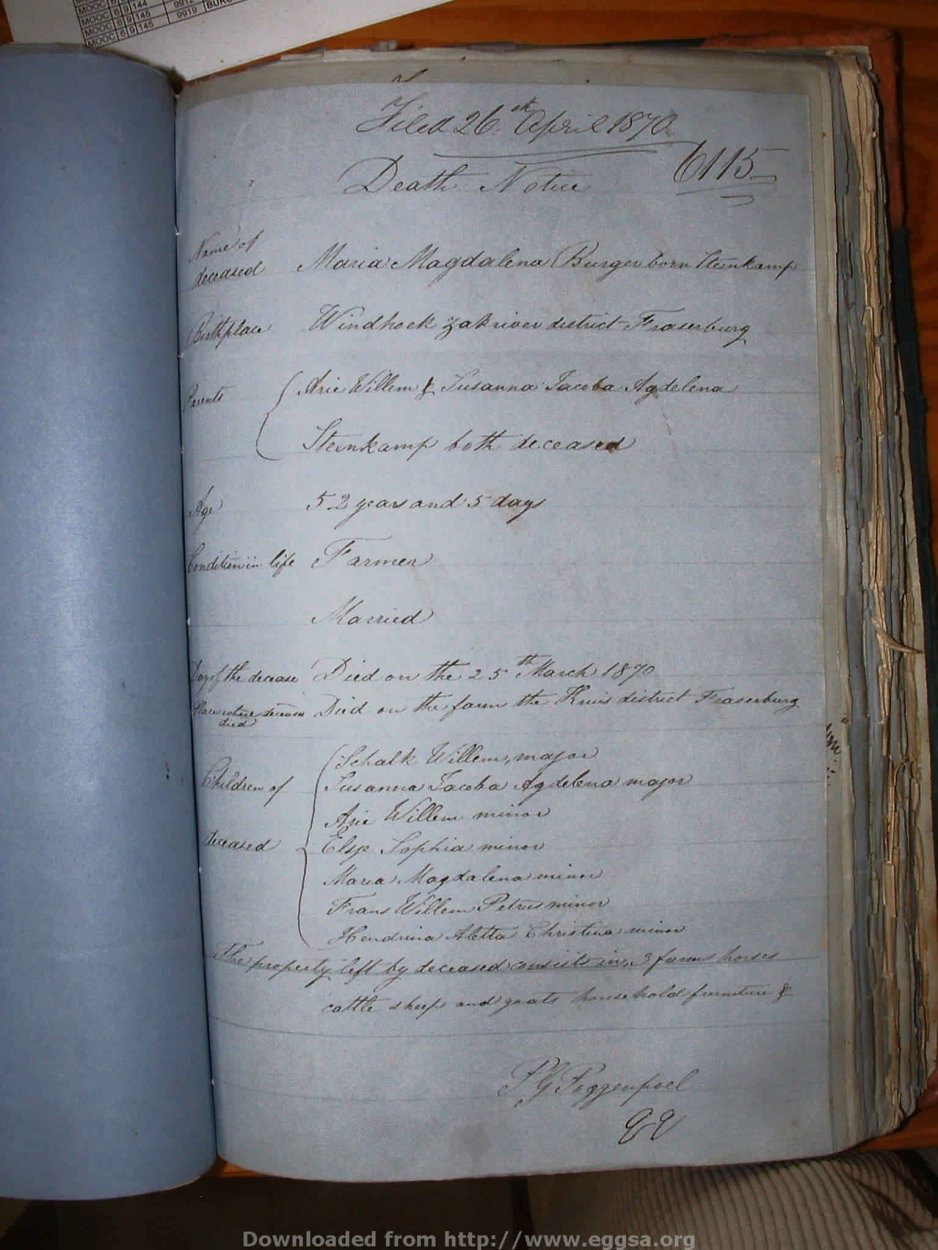 MOOC 6 9 144 9912
MOOC 6 9 145 9919
MOOC 6 9 145
Filed 26th April 1870
6115
Death Notice
Name of deceased Maria Magdalena Burger born Steenkamp
Birthplace Windhoek Zakriver district Fraserburg
Parents Arie Willem & Susanna Jacoba Agdelena
Steenkamp both deceased
Age 52 years and 5 days
Condition in life Farmer
Married
Day of the decease Died on the 25th March 1870
Place where deceased died Died on the farm the Kruis district Fraserburg
Children of deceased
Schalk Willem, major
Susanna Jacoba Agdelena major
Arie Willem minor
Elsje Sophia minor
Maria Magdalena minor
Frans Willem Petrus minor
Hendrina Aletta Christina minor
The property left by deceased consists in, 3 farms horses
cattle sheep and goats household furniture &
P G Poggenpoel
qq
Downloaded from http://www.eggsa.org